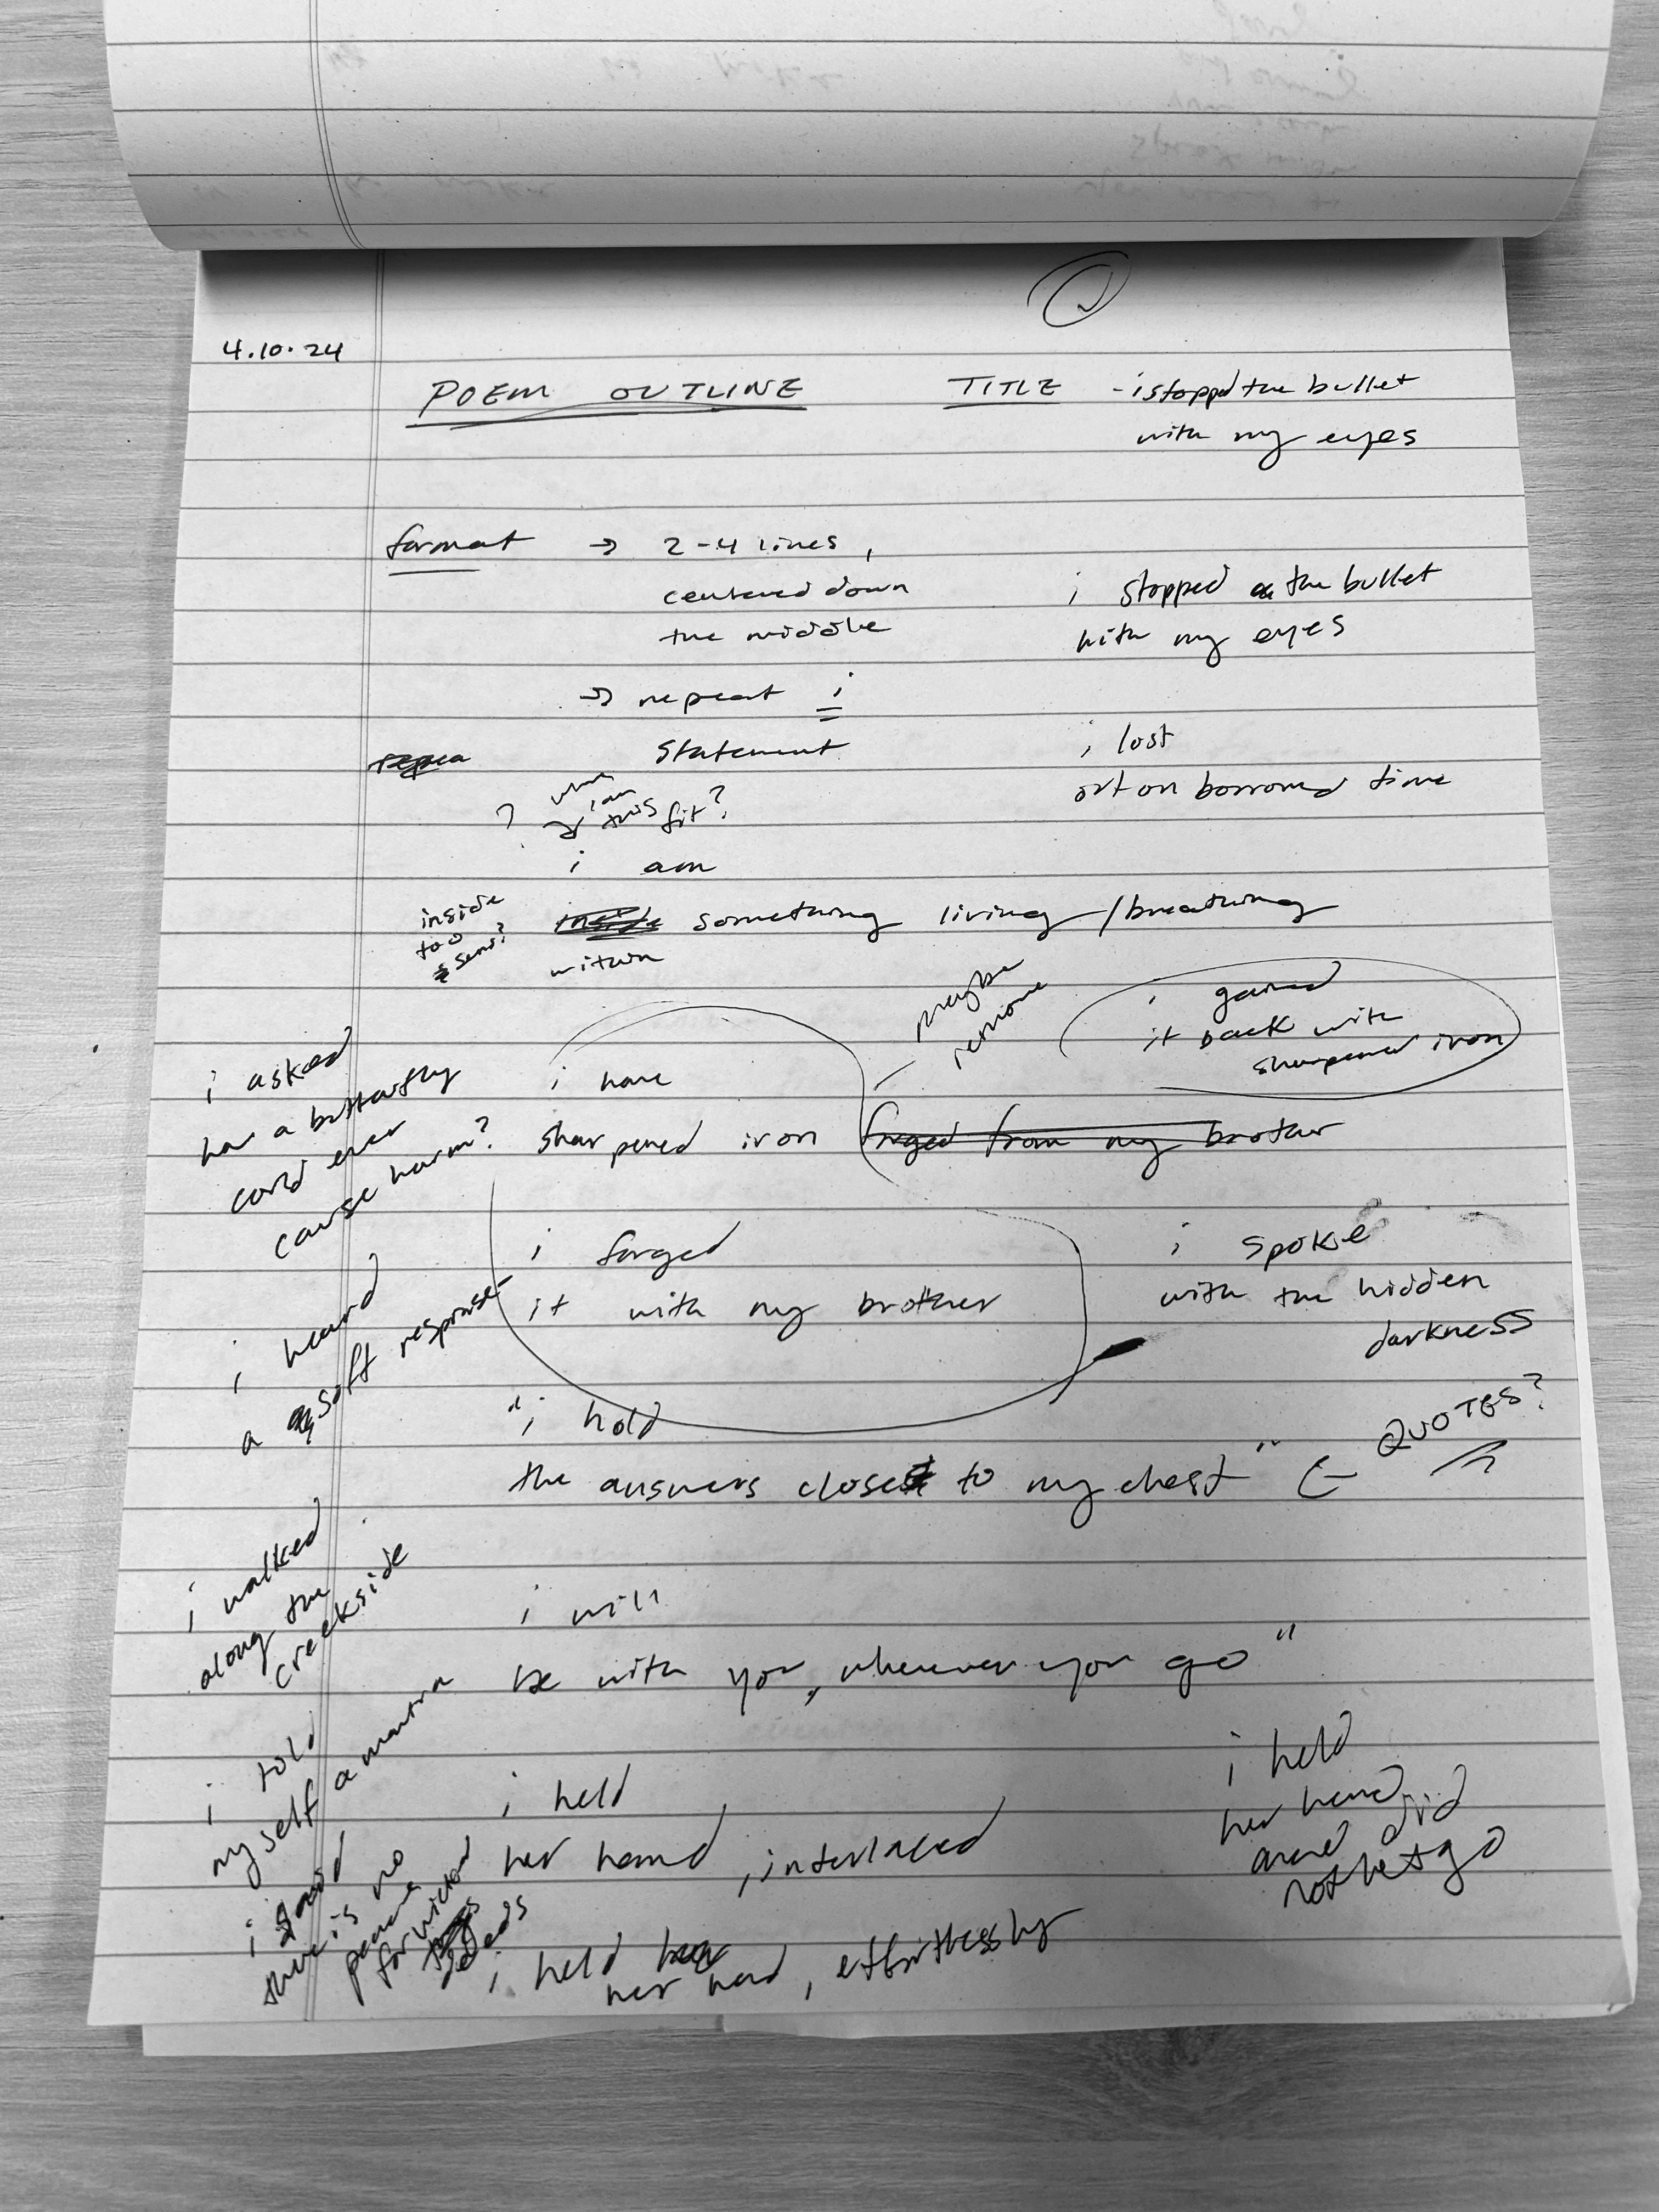 4.10.24
POEM OUTLINE
TITLE - i stopped the bullet
with my eyes
format → 2-4 lines,
centered down
the middle
→ repeat i
statement
i stopped the bullet
with my eyes
i lost
out on borrowed time
repea
? where
can
this fit?
i am
inside
too
semi?
inside something living/breathing
within
maybe
remove
i gained
it back with
sharpened iron
i have
sharpened iron forged from my brother
i forged
it with my brother
i spoke
with the hidden
darkness
"i hold
the answers close to my chest" ← QUOTES?
i will
be with you, wherever you go"
i held
her hand, interlaced
i held
her hand, effortlessly
i held
her hand
and did
not let go
i asked
how a butterfly
could ever
cause harm?
i heard
a soft response
i walked
along the
creekside
i told
myself a mantra
i said
there is no
peace
for wicked
deeds